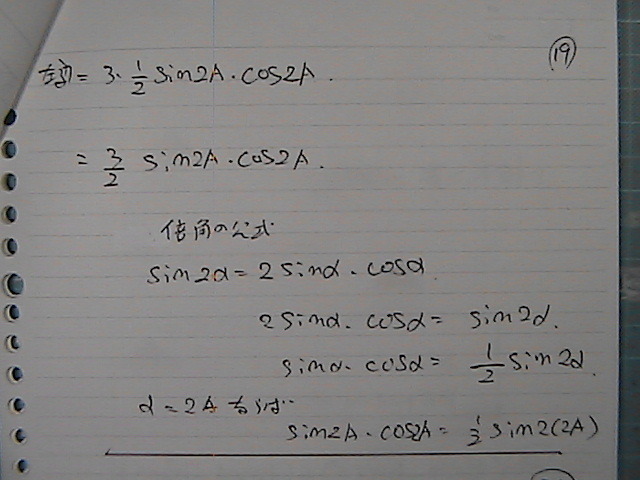 ⑲
左辺 = 3・1/2 sin2A・cos2A.
= 3/2 sin2A・cos2A.
倍角の公式
sin2α = 2sinα・cosα
2sinα・cosα = sin2α.
sinα・cosα = 1/2 sin2α.
α = 2A ならば
sin2A・cos2A = 1/2 sin2(2A)